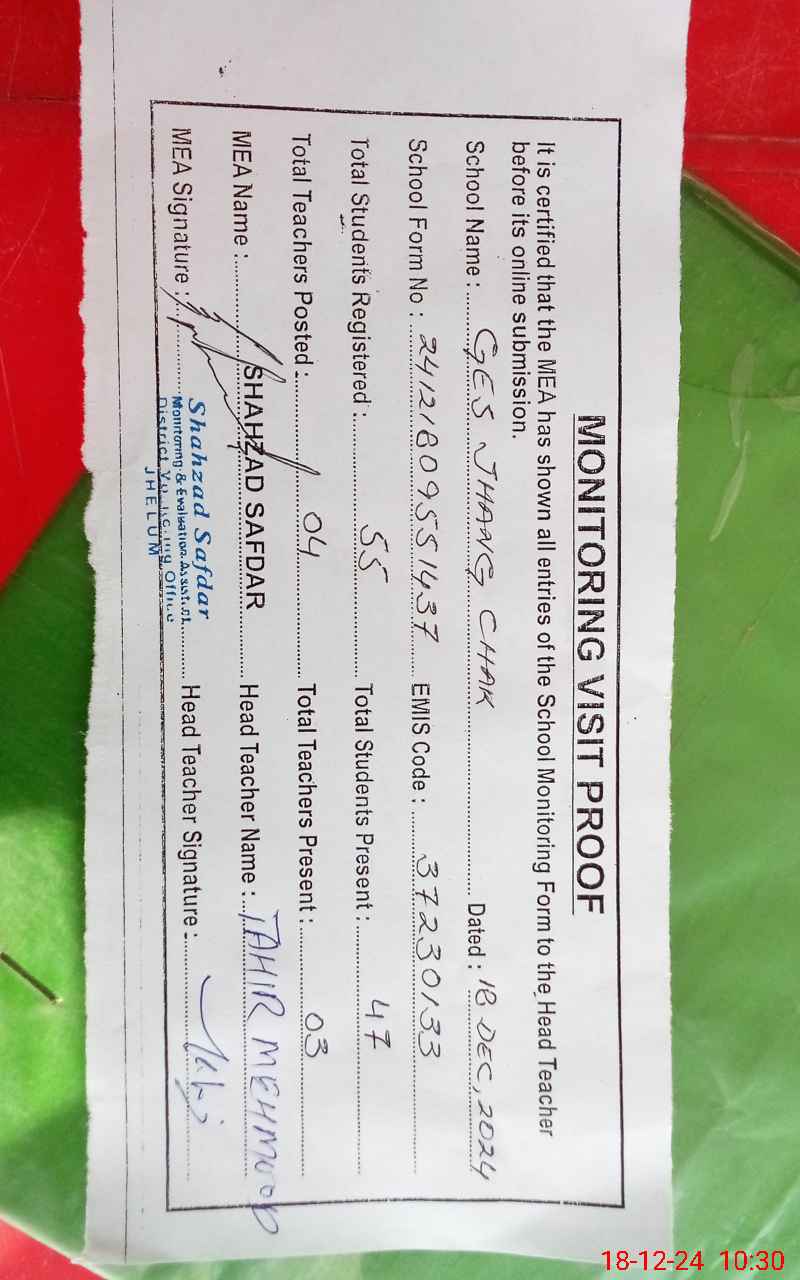 MONITORING VISIT PROOF
It is certified that the MEA has shown all entries of the School Monitoring Form to the Head Teacher
before its online submission.
School Name : GES JHANG CHAK Dated : 18 DEC, 2024
School Form No : 24121809551437 EMIS Code : 37230133
Total Students Registered : 55 Total Students Present : 47
Total Teachers Posted : 04 Total Teachers Present : 03
MEA Name : SHAHZAD SAFDAR Head Teacher Name : TAHIR MEHMOOD
MEA Signature : Head Teacher Signature :
Shahzad Safdar
Monitoring & Evaluation Assistant
District Office
JHELUM
18-12-24 10:30